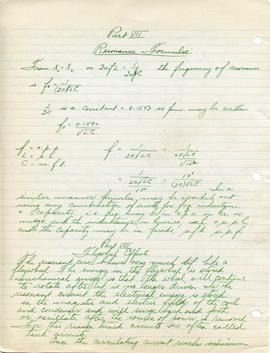 Part VII
Resonance Formulae
From XL = XC or 2πfL = 1/2πfC the frequency of resonance
is f = 1/2π√LC
1/2π is a constant = 0.1592 so fo may be written
f = 0.1592/√LC
f = c.p.s.
f = 1/2π√LC
In a
similar manner formulas may be worked out
using any combination of units for f, inductance
+ Capacity i.e. f may be in c.p.s. or kc. or
mc. and the inductance in henries, m.h. or μ.h.
and the capacity may be in farads, μfd or μμfd.
Part VIII
Flywheel Effect.
The resonant circuit behaves very much like a
flywheel. The energy in the flywheel is stored
mechanical energy so that the wheel will continue
to rotate after it is no longer driven. In the
resonant circuit the electrical energy is stored
in the magnetic and electric fields of the coil
and condenser and will surge back and forth
or oscillate after source of power is removed
For this reason tuned circuits are often called
tank circuits.
Once the circulating current reaches maximum